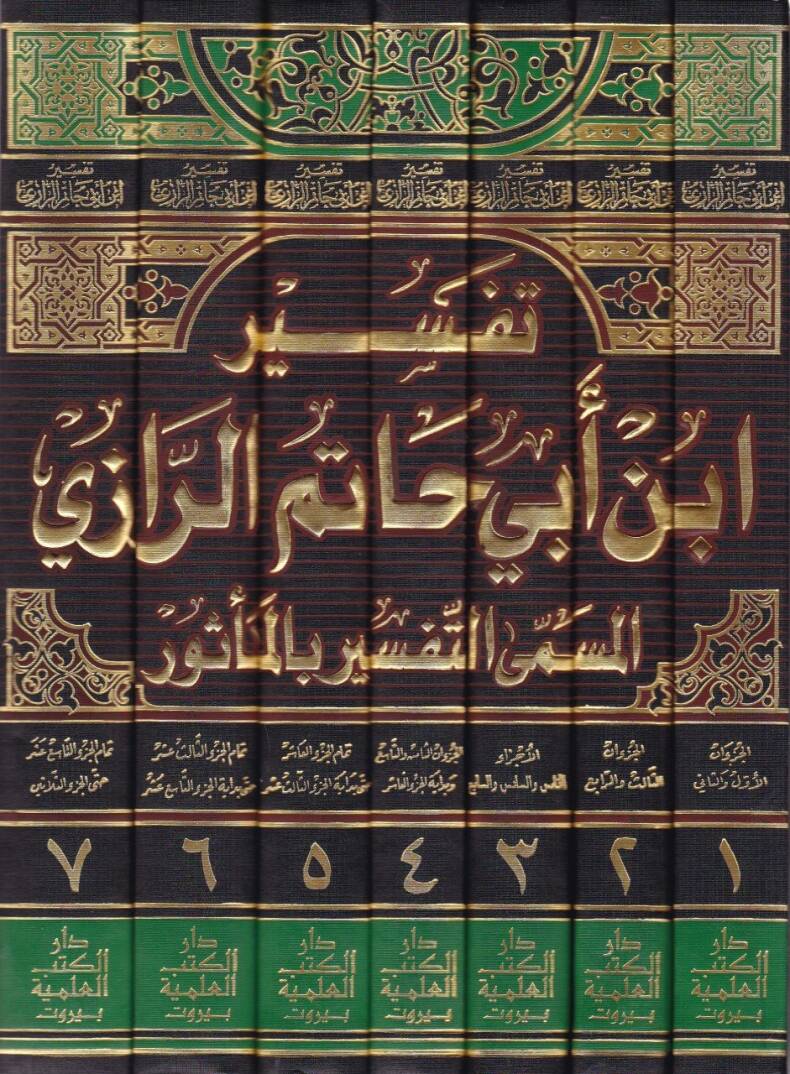 تفسير
ابن أبي حاتم الرازي
تفسير
ابن أبي حاتم الرازي
تفسير
ابن أبي حاتم الرازي
تفسير
ابن أبي حاتم الرازي
تفسير
ابن أبي حاتم الرازي
تفسير
ابن أبي حاتم الرازي
تفسير
ابن أبي حاتم الرازي
تَفسِير
ابنْ أَبي حَاتم الرَّازي
المسَمَّى التَّفسير بالمأثور
الجزءان
الأول والثاني
١
دار
الكتب
العلمية
بيروت
الجزءان
الثالث والرابع
٢
دار
الكتب
العلمية
بيروت
الأجزاء
الخامس والسادس والسابع
٣
دار
الكتب
العلمية
بيروت
الجزءان الثامن والتاسع
وبداية الجزء العاشر
٤
دار
الكتب
العلمية
بيروت
تمام الجزء العاشر
حتى بداية الجزء الثالث عشر
٥
دار
الكتب
العلمية
بيروت
تمام الجزء الثالث عشر
حتى بداية الجزء التاسع عشر
٦
دار
الكتب
العلمية
بيروت
تمام الجزء التاسع عشر
حتى الجزء الثلاثين
٧
دار
الكتب
العلمية
بيروت